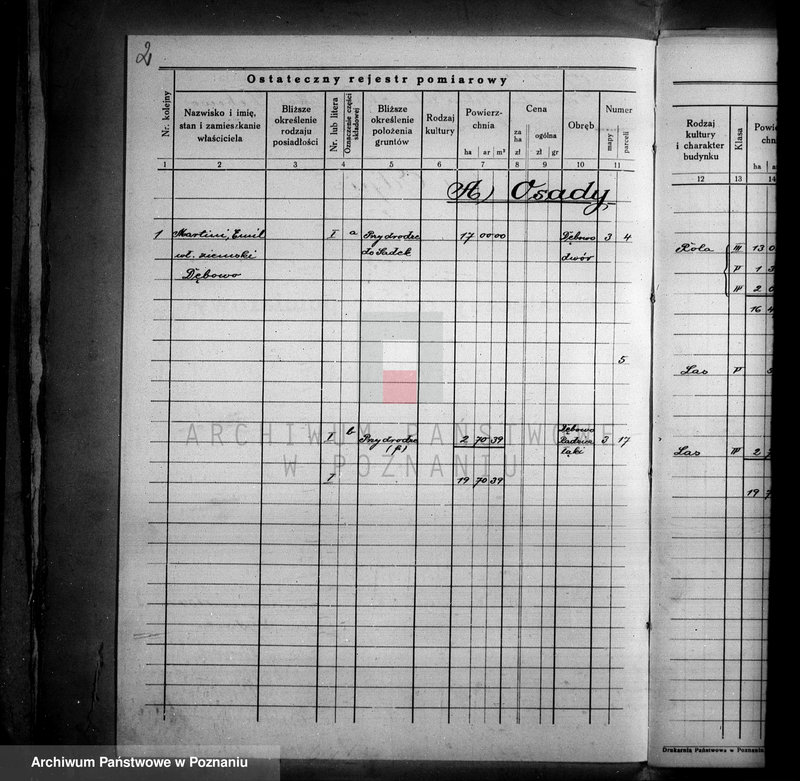 2
Ostateczny rejestr pomiarowy
Nr. kolejny
Nazwisko i imię, stan i zamieszkanie właściciela
Bliższe określenie rodzaju posiadłości
Nr. lub litera
Oznaczenie części składowej
Bliższe określenie położenia gruntów
Rodzaj kultury
Powierzchnia
ha ar m²
Cena
za ha zł
ogólna zł gr
Obręb
Numer
mapy parceli
1 2 3 4 5 6 7 8 9 10 11
A) Osady
1 Martini, Emil I a Przy drodze 17 00 00 Dębowo 3 4
wł. ziemski do Sadek dwór
Dębowo
5
I b Przy drodze 2 70 39 Dębowo 3 17
łąki
I 19 70 39
Rodzaj kultury i charakter budynku
Klasa
12 13 14
ha
Rola III 13
IV 1
16
Las
Las 2
19
ARCHIWUM PAŃSTWOWE
W POZNANIU
Drukarnia Państwowa w Poznaniu
Archiwum Państwowe w Poznaniu